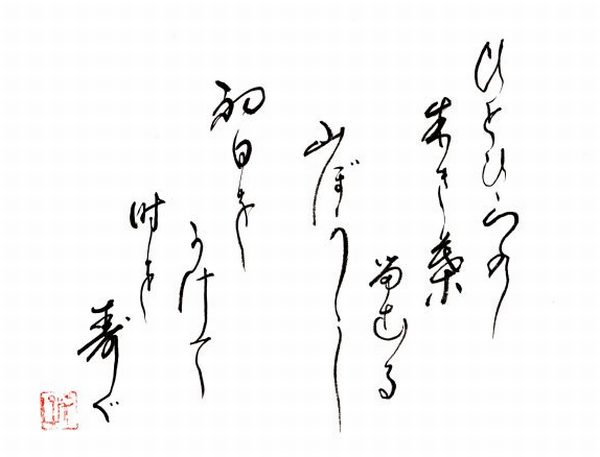 ひとひらの
朱き葉
留むる
山ぼうし
初日を
うけて
時を
寿ぐ